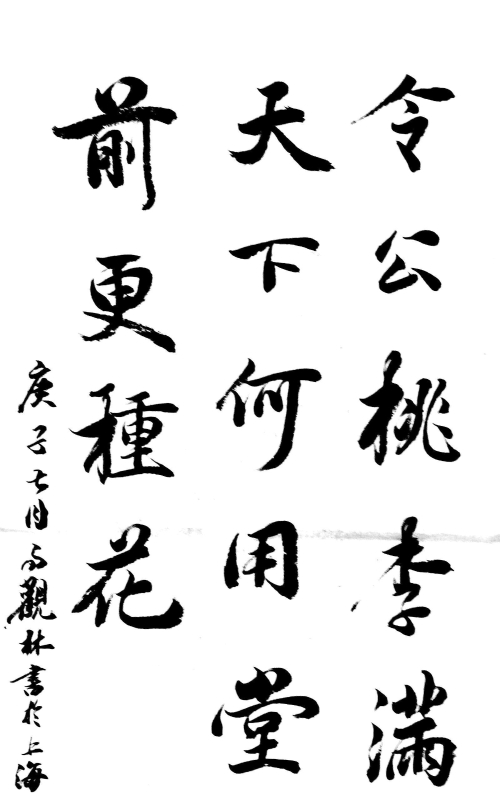 令公桃李滿
天下何用堂
前更種花
庚子七月 觀林書於上海